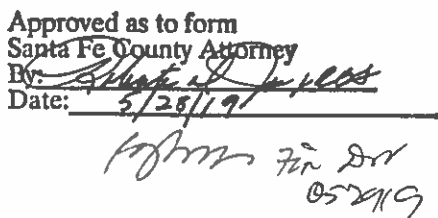 Approved as to form
Santa Fe County Attorney
By:
Date: 5/28/19
Fin Dir
052919